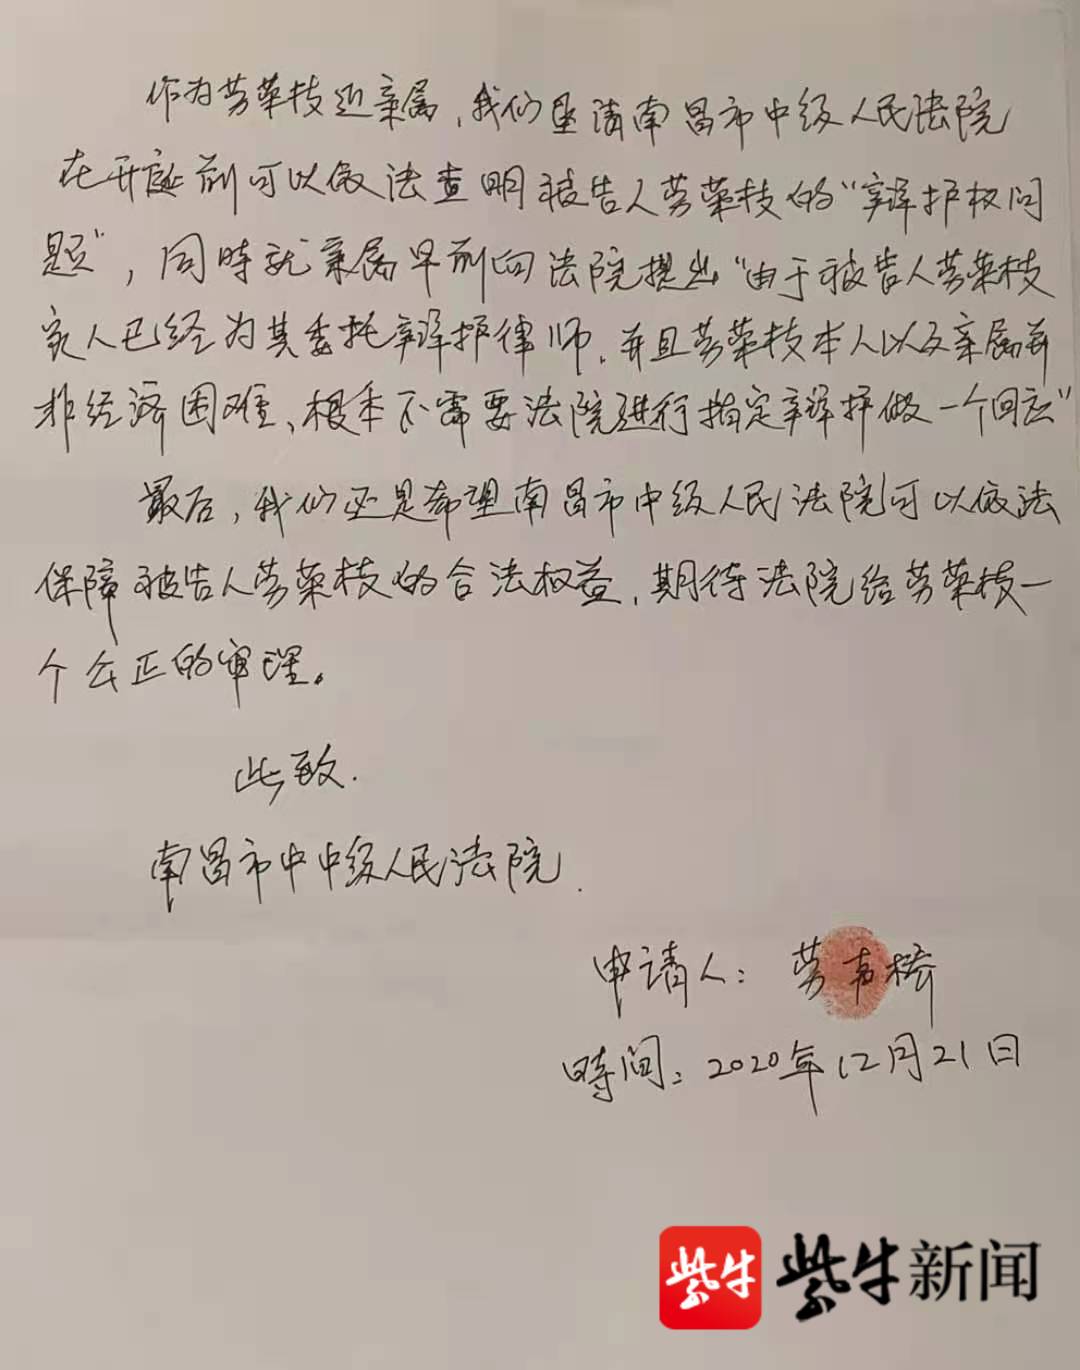 作为劳荣枝近亲属，我们恳请南昌市中级人民法院
在开庭前可以依法查明被告人劳荣枝的“辩护权问
题”，同时就亲属早前向法院提出“由于被告人劳荣枝
家人已经为其委托辩护律师，并且劳荣枝本人以及亲属并
非经济困难、根本不需要法院进行指定辩护做一个回应”
最后，我们还是希望南昌市中级人民法院可以依法
保障被告人劳荣枝的合法权益，期待法院给劳荣枝一
个公正的审理。
此致.
南昌市中中级人民法院.
申请人：劳声桥
时间：2020年12月21日
紫牛 紫牛新闻